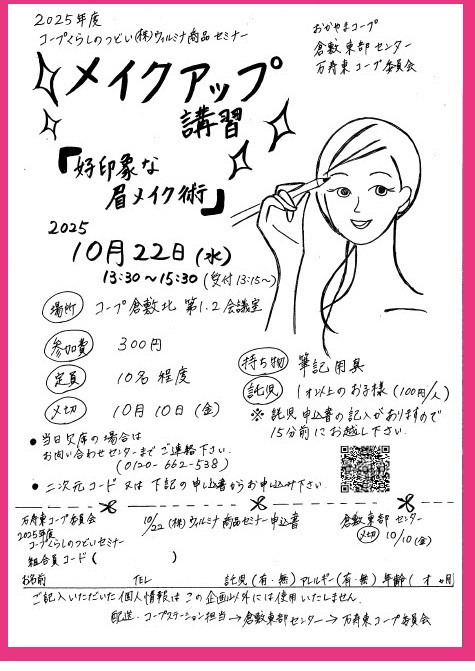 2025年度
コープくらしのつどい(株)ウィルミナ商品セミナー
おかやまコープ
倉敷東部センター
万寿東コープ委員会
メイクアップ
講習
『好印象な
眉メイク術』
2025
10月22日(水)
13:30〜15:30 (受付13:15〜)
場所 コープ倉敷北 第1.2会議室
参加費 300円
定員 10名程度
〆切 10月10日(金)
持ち物 筆記用具
託児 1才以上のお子様(100円/人)
※託児申込書の記入がありますので
15分前にお越し下さい.
●当日欠席の場合は
お問い合わせセンターまでご連絡下さい.
(0120-662-538)
●二次元コード又は下記の申し込書からお申込み下さい
万寿東コープ委員会
2025年度
コープくらしのつどいセミナー
10/22 (株)ウィルミナ商品セミナー申込書
倉敷東部センター
〆切 10/10(金)
組合員コード( )
お名前 TEL 託児(有・無) アレルギー(有・無) 年齢( 才 ヵ月)
ご記入いただいた個人情報はこの企画以外には使用いたしません.
配送・コープステーション担当→倉敷東部センター→万寿東コープ委員会